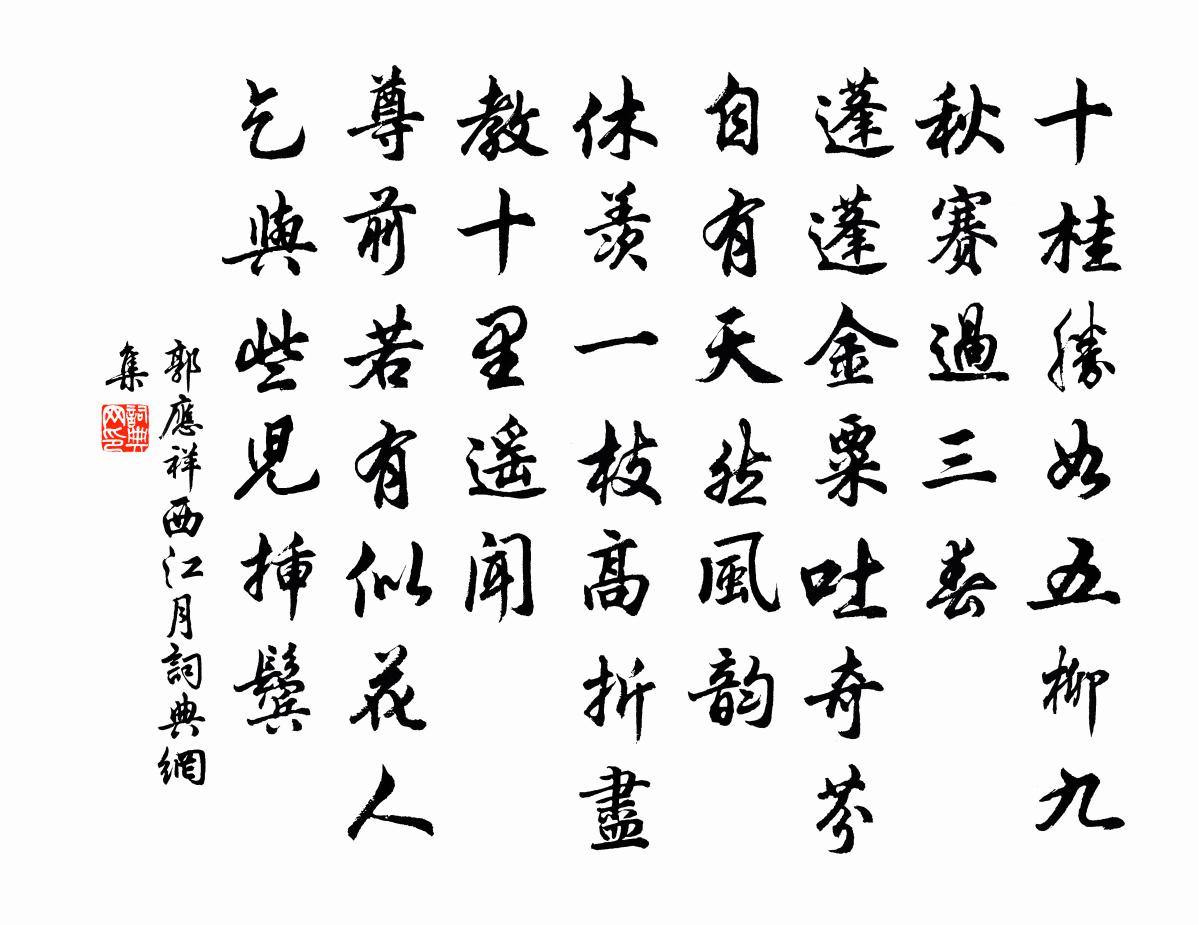 十桂勝如五柳九
秋賽過三春
蓬蓬金粟吐奇芬
自有天然風韵
休羨一枝高折盡
教十里遥聞
尊前若有似花人
乞與些兒插鬓
郭應祥西江月詞典網
集
詞典網印